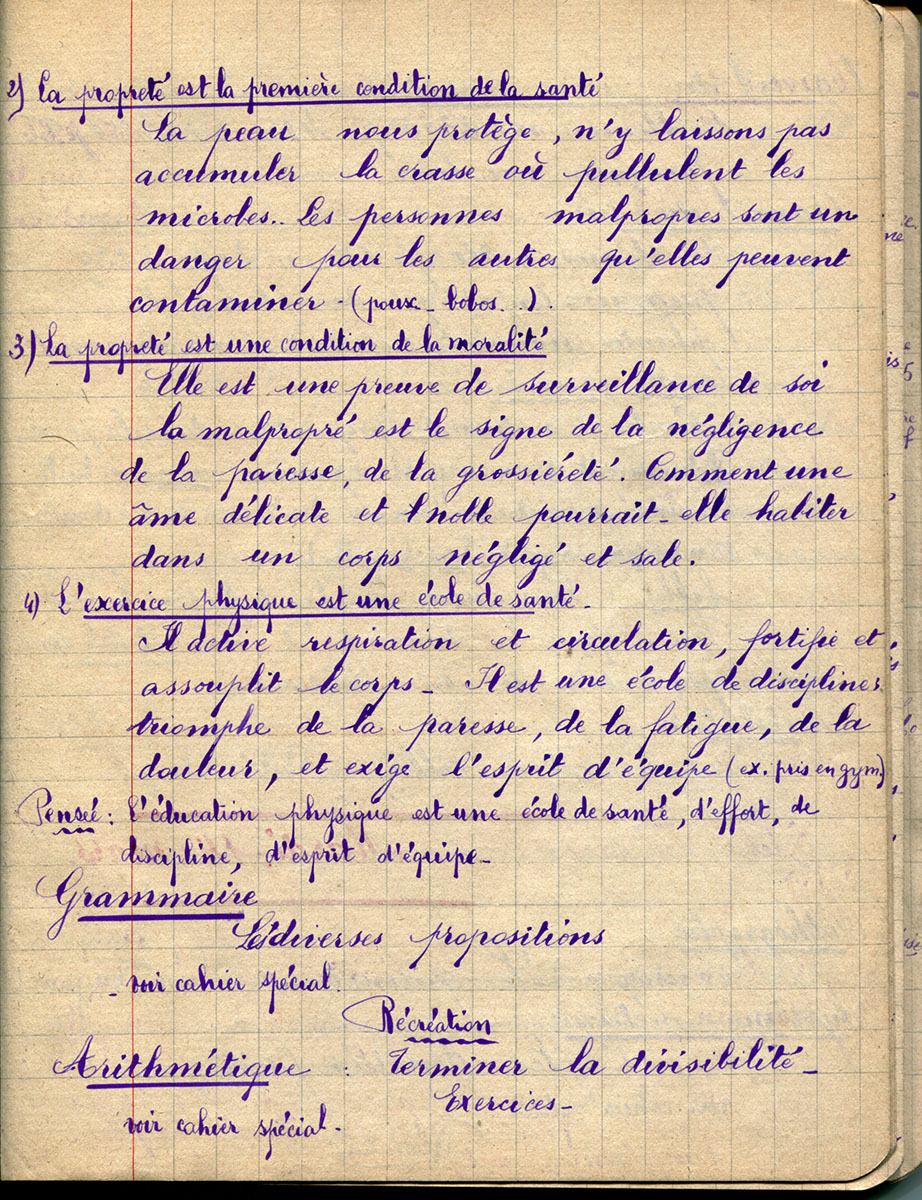 2) La propreté est la première condition de la santé
La peau nous protège, n'y laissons pas
accumuler la crasse où pullulent les
microbes.. Les personnes malpropres sont un
danger pour les autres qu'elles peuvent
contaminer - (poux - bobos..).
3) La propreté est une condition de la moralité
Elle est une preuve de surveillance de soi
la malpropré est le signe de la négligence
de la paresse, de la grossièreté. Comment une
âme délicate et noble pourrait-elle habiter
dans un corps négligé et sale.
4) L'exercice physique est une école de santé -
Il active respiration et circulation, fortifie et
assouplit le corps - Il est une école de discipline:
triomphe de la paresse, de la fatigue, de la
douleur, et exige l'esprit d'équipe (ex. pris en gym.)
Pensée: L'éducation physique est une école de santé, d'effort, de
discipline, d'esprit d'équipe -
Grammaire
Les diverses propositions
- voir cahier spécial.
Récréation
Arithmétique : Terminer la divisibilité -
Exercices -
voir cahier spécial -